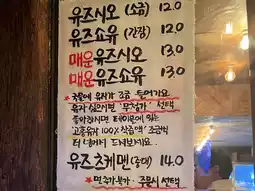 유즈시오 (소금) 12.0
유즈쇼유 (간장) 12.0
매운유즈시오 13.0
매운유즈쇼유 13.0
국물에 유자가 조금 들어가요.
유자 싫으시면 "무첨가" 선택
좋아하시면 테이블에 있는
"고흥유자 100% 착즙액" 조금씩
더 넣어서 드셔보세요.
유즈츠케멘(냉메) 14.0
면추가불가 - 주문시 선택